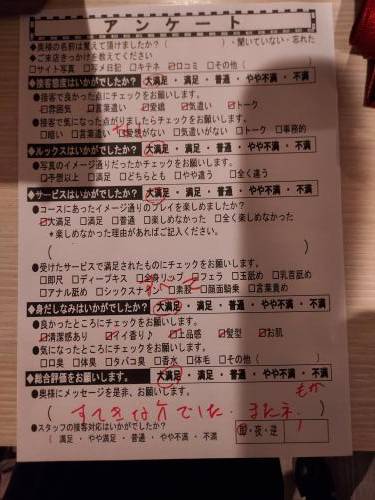 アンケート
◆奥様の名前は覚えて頂けましたか？（　　　　）・聞いていない・忘れた
◆ご来店きっかけを教えてください
□サイト写真　□写メ日記　□キテネ　☑口コミ　□その他（
◆接客態度はいかがでしたか？　大満足 ・ 満足 ・ 普通 ・ やや不満 ・ 不満
●接客で良かった点にチェックをお願いします。
☑雰囲気　□言葉遣い　☑愛嬌　☑気遣い　☑トーク
●接客で気になった点がありましたらチェックをお願いします。
□暗い　□言葉遣い　□愛想がない　□気遣いがない　□トーク　□事務的
◆ルックスはいかがでしたか？　大満足 ・ 満足 ・ 普通 ・ やや不満 ・ 不満
●写真のイメージ通りだったかチェックをお願いします。
□予想以上　□満足　□どちらとも　□やや違う　□全く違う
◆サービスはいかがでしたか？　大満足 ・ 満足 ・ 普通 ・ やや不満 ・ 不満
●コースにあったイメージ通りのプレイを楽しめましたか？
☑大満足　□満足　□普通　□楽しめなかった　□全く楽しめなかった
＊楽しめなかった理由があればご記入ください。
（　　　　）
●受けたサービスで満足されたものにチェックをお願いします。
□即尺　□ディープキス　□全身リップ　□フェラ　□玉舐め　□乳首舐め
□アナル舐め　□シックスナイン　□素股　□顔面騎乗　□言葉責め
◆身だしなみはいかがでしたか？　大満足 ・ 満足 ・ 普通 ・ やや不満 ・ 不満
●良かったところにチェックをお願いします。
☑清潔感あり　☑イイ香り♪　☑上品感　☑髪型　☑お肌
●気になったところにチェックをお願いします。
□口臭　□体臭　□タバコ臭　□香水　□体毛　□その他（　　　　）
◆総合評価をお願いします。　大満足 ・ 満足 ・ 普通 ・ やや不満 ・ 不満
●奥様にメッセージを是非、お願いします。
（すてきな方でした。またネ
●スタッフの接客対応はいかがでしたか？
（　満足 ・ やや満足 ・ 普通 ・ やや不満 ・ 不満
・夜・逆